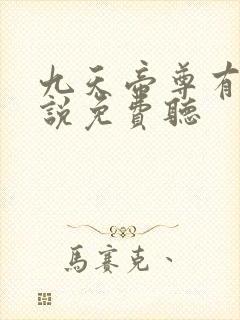 九天帝尊有
說免費聽
馬賽克、